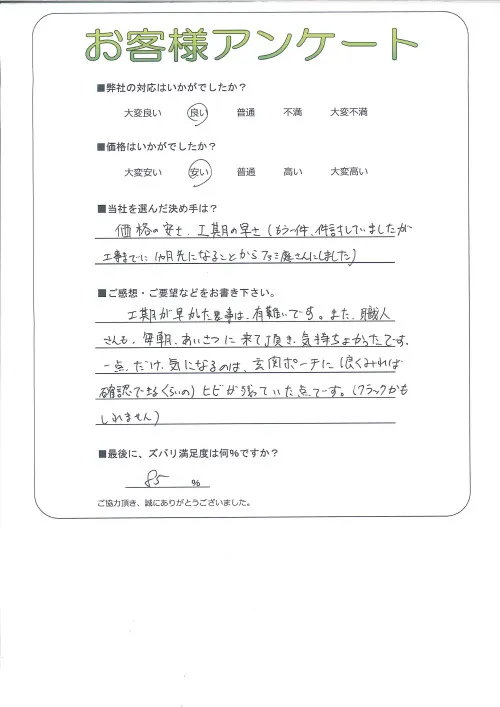 お客様アンケート
■弊社の対応はいかがでしたか？
大変良い 良い 普通 不満 大変不満
■価格はいかがでしたか？
大変安い 安い 普通 高い 大変高い
■当社を選んだ決め手は？
価格の安さ、工期の早さ（もう一件、検討していましたが
工事までに1ヵ月先になることからファミ庭さんにしました）
■ご感想・ご要望などをお書き下さい。
工期が早かった事は、有難いです。また、職人
さんも、毎朝、あいさつに来て頂き、気持ちよかったです。
一点、だけ、気になるのは、玄関ポーチに（良くみれば
確認できるくらいの）ヒビが残っていた点です。（クラックかも
しれません）
■最後に、ズバリ満足度は何%ですか？
85 %
ご協力頂き、誠にありがとうございました。